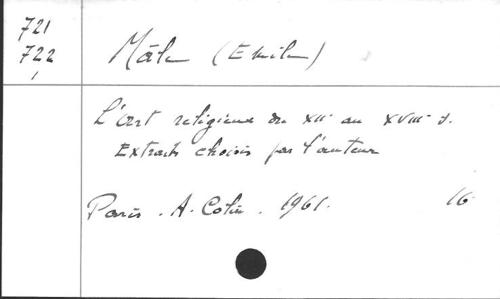 721
722
Mâle (Emile)
L'art religieux du XIIe au XVIIIe s.
Extraits choisis par l'auteur
Paris. A. Colin. 1961. 16